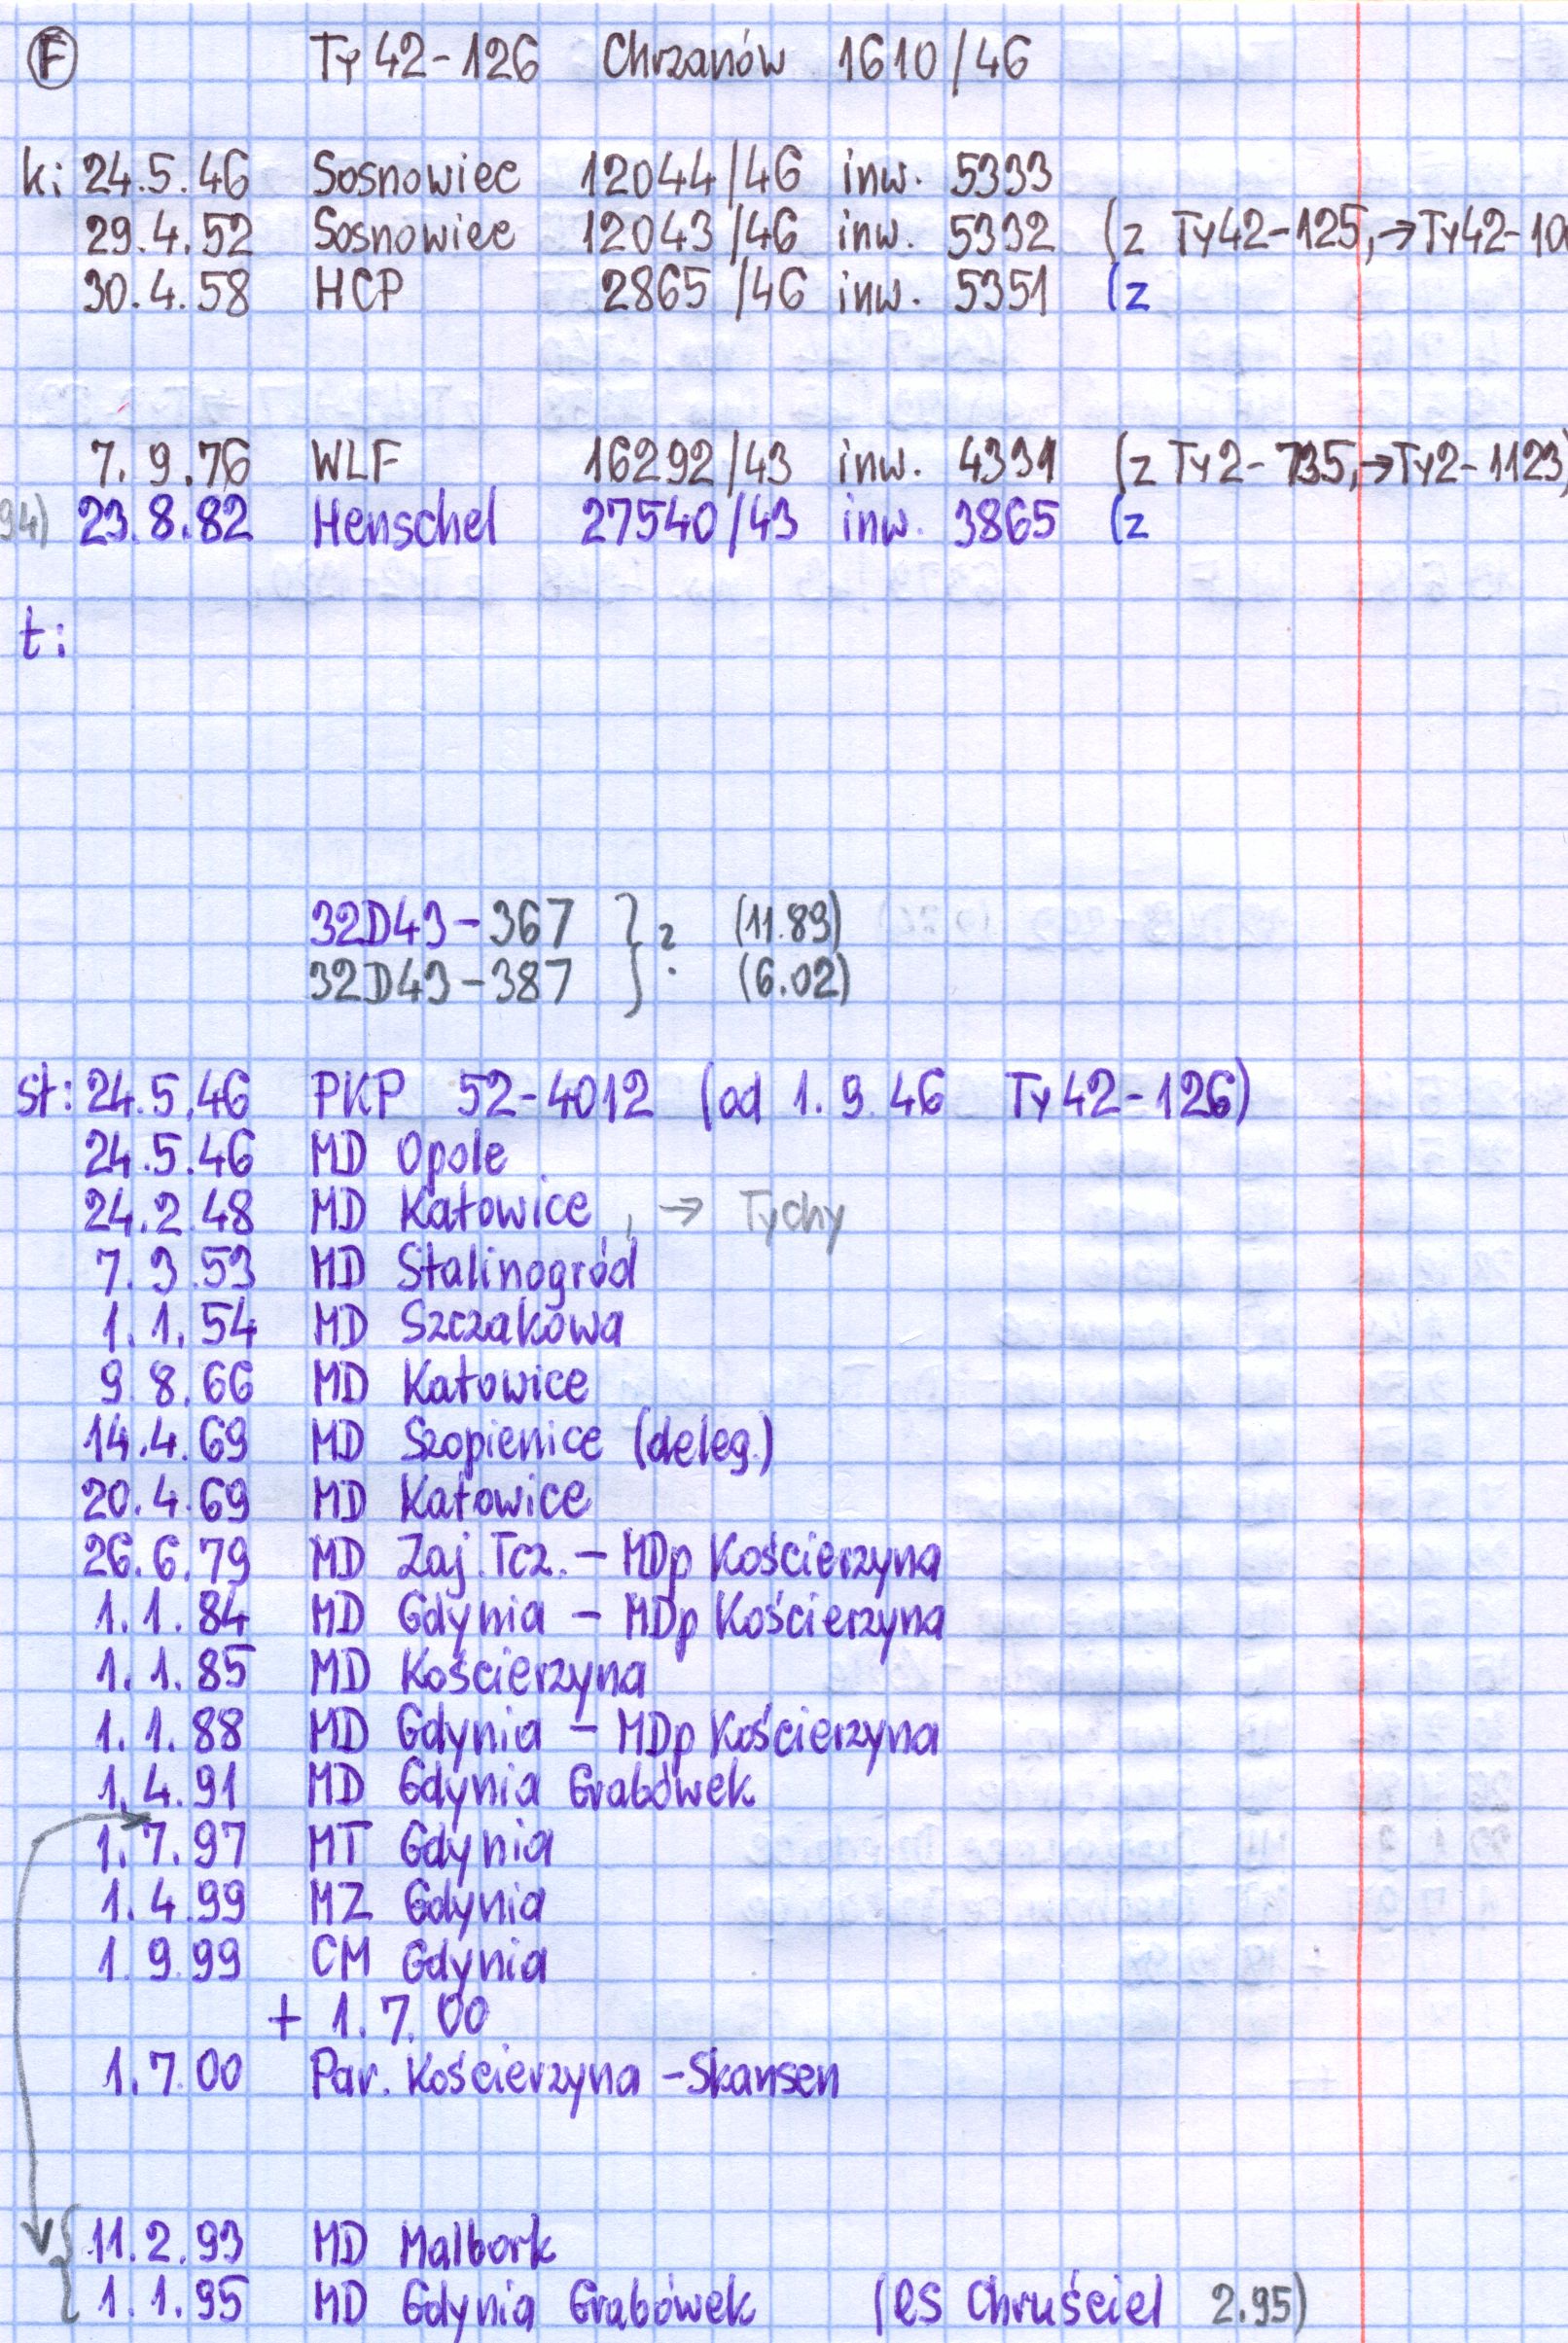 F Ty42-126 Chrzanów 1610/46
k: 24.5.46 Sosnowiec 12044/46 inw. 5333
29.4.52 Sosnowiec 12043/46 inw. 5332 (z Ty42-125, →Ty42-10
30.4.58 HCP 2865/46 inw. 5351 (z
7.9.76 WLF 16292/43 inw. 4331 (z Ty2-735, →Ty2-1123)
94) 23.8.82 Henschel 27540/43 inw. 3865 (z
t:
32D43-367 } ? (11.89)
32D43-387 (6.02)
st: 24.5.46 PKP 52-4012 (od 1.9.46 Ty42-126)
24.5.46 MD Opole
24.2.48 MD Katowice, → Tychy
7.3.53 MD Stalinogród
1.1.54 MD Szczakowa
9.8.66 MD Katowice
14.4.69 MD Szopienice (deleg.)
20.4.69 MD Katowice
26.6.79 MD Zaj.Tcz. – MDp Kościerzyna
1.1.84 MD Gdynia – MDp Kościerzyna
1.1.85 MD Kościerzyna
1.1.88 MD Gdynia – MDp Kościerzyna
1.4.91 MD Gdynia Grabówek
1.7.97 MT Gdynia
1.4.99 MZ Gdynia
1.9.99 CM Gdynia
+ 1.7.00
1.7.00 Par. Kościerzyna – Skansen
11.2.93 MD Malbork
1.1.95 MD Gdynia Grabówek (RS Chruściel 2.95)